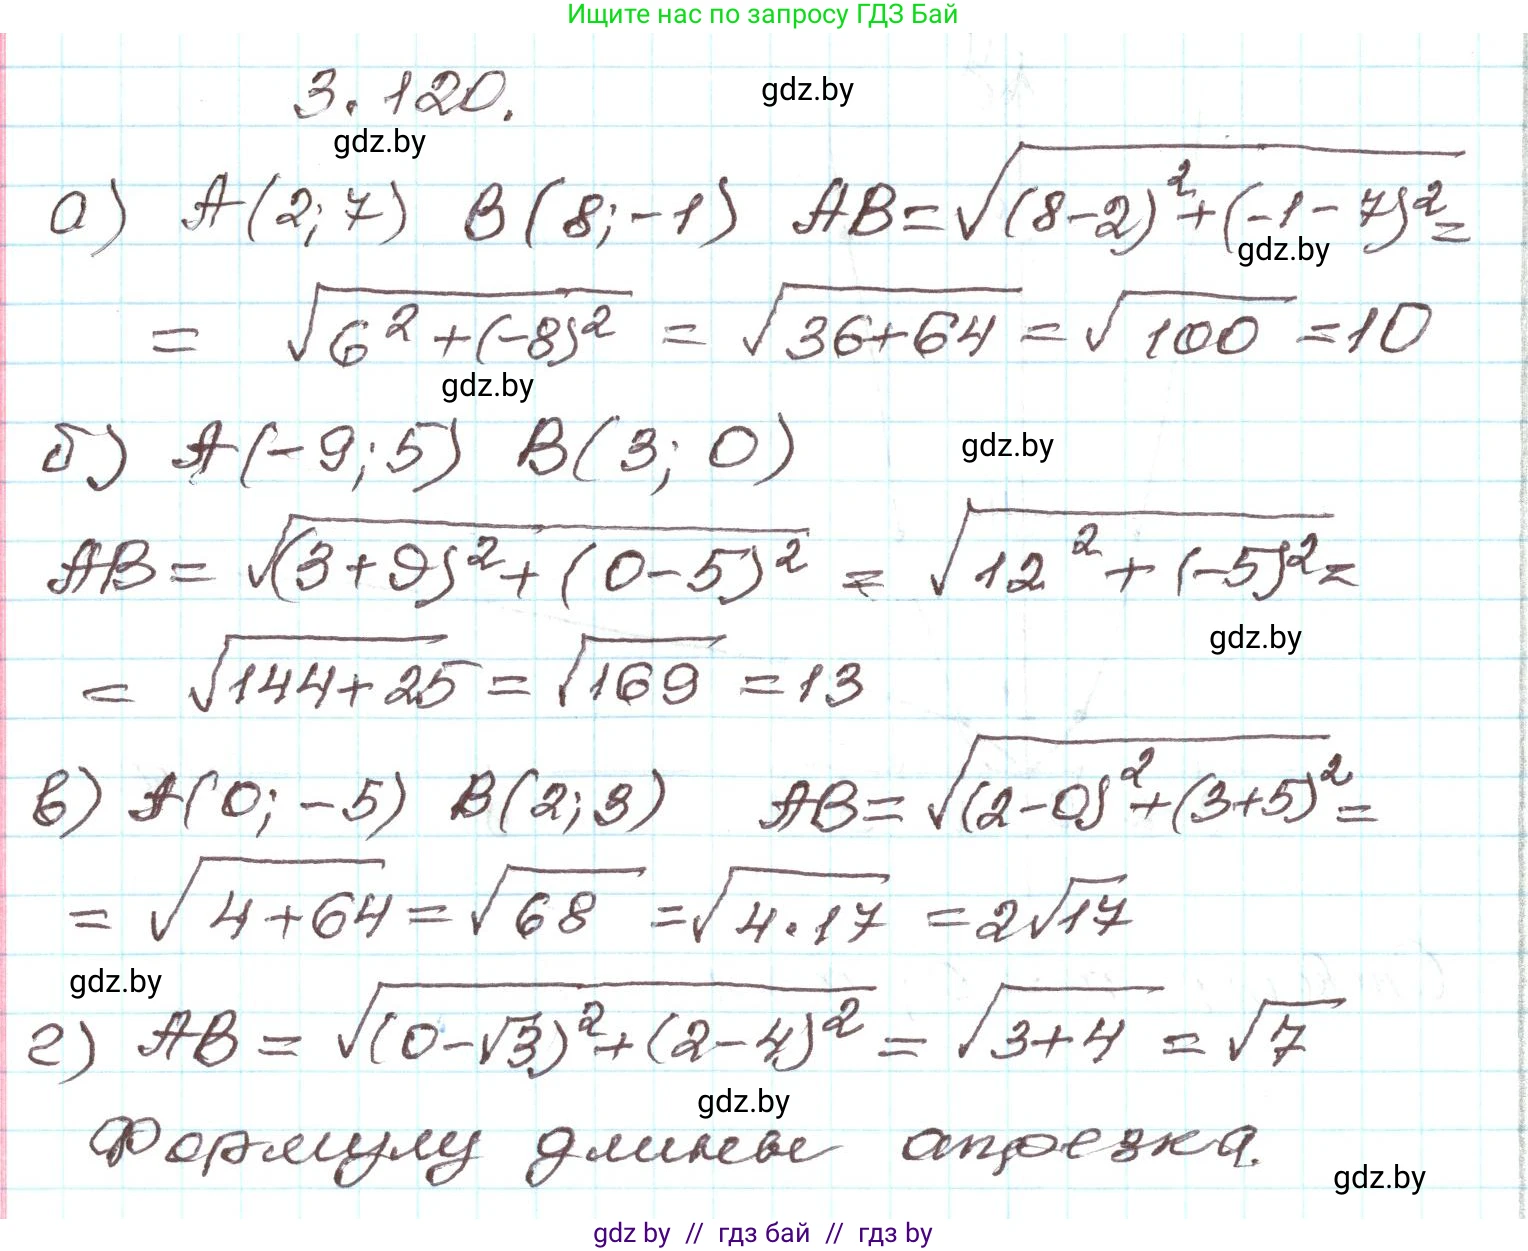 Ищите нас по запросу ГДЗ Бай
3.120.
gdz.by
gdz.by
а) A(2;7) B(8;-1) AB=√((8-2)²+(-1-7)²)=
gdz.by
= √(6²+(-8)²) = √(36+64) = √100 =10
gdz.by
б) A(-9;5) B(3; 0)
gdz.by
AB= √((3+9)²+(0-5)²) = √(12²+(-5)²)=
gdz.by
= √(144+25) = √169 =13
в) A(0; -5) B(2;3) AB= √((2-0)²+(3+5)²)=
= √(4+64) = √68 =√(4·17) =2√17
gdz.by
г) AB = √((0-√3)²+(2-4)²) = √(3+4) = √7
gdz.by
Формулу длины отрезка.
gdz.by
gdz by // гдз бай // гдз by